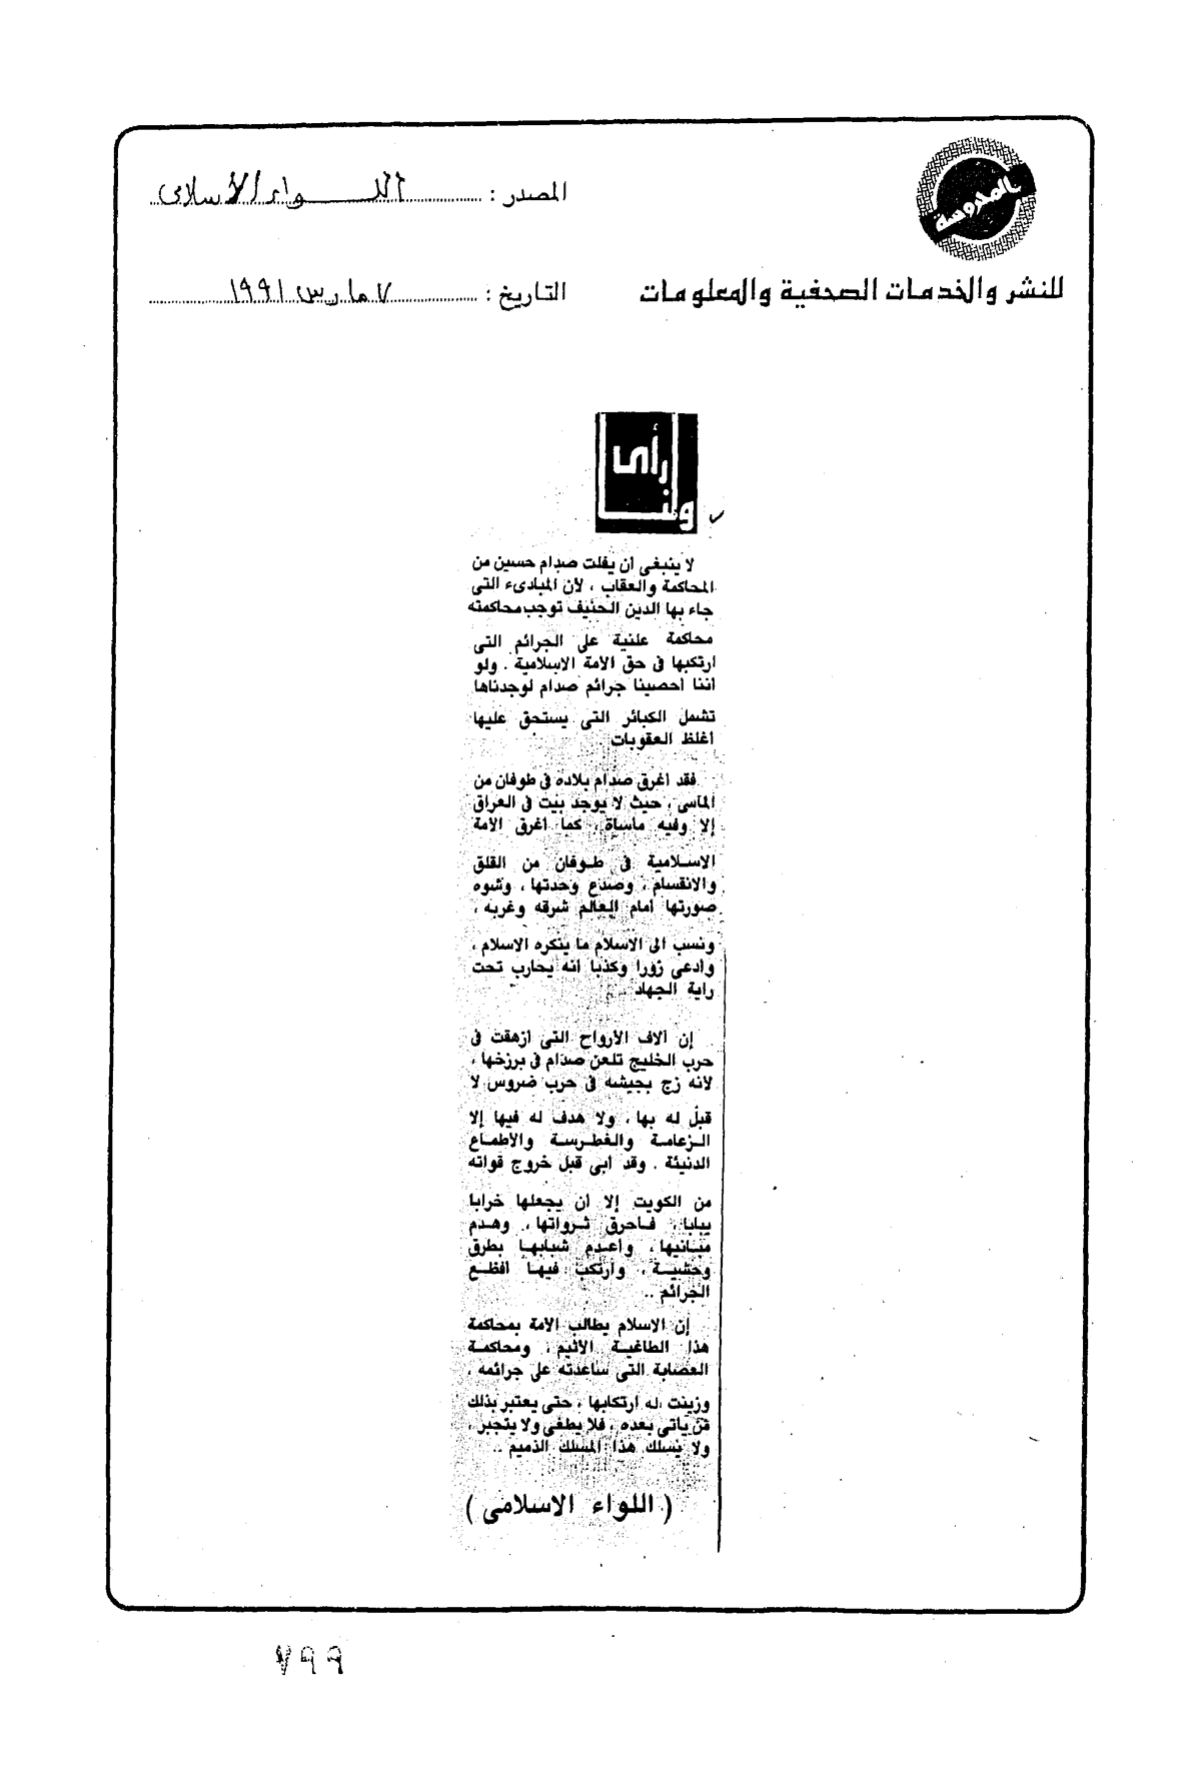 المحروسة
المصدر : اللواء الاسلامى
للنشر والخدمات الصحفية والمعلومات
التاريخ : ٧ مارس ١٩٩١
ولنا
رأى
لا ينبغى أن يفلت صدام حسين من
المحاكمة والعقاب ، لأن المبادىء التى
جاء بها الدين الحنيف توجب محاكمته
محاكمة علنية على الجرائم التى
ارتكبها فى حق الأمة الاسلامية . ولو
أننا أحصينا جرائم صدام لوجدناها
تشمل الكبائر التى يستحق عليها
أغلظ العقوبات
فقد أغرق صدام بلاده فى طوفان من
المآسى ، حيث لا يوجد بيت فى العراق
إلا وفيه مأساة ، كما أغرق الأمة
الاسلامية فى طوفان من القلق
والانقسام ، وصدع وحدتها ، وشوه
صورتها أمام العالم شرقه وغربه ،
ونسب الى الاسلام ما ينكره الاسلام ،
وادعى زورا وكذبا أنه يحارب تحت
راية الجهاد ..
إن آلاف الأرواح التى أزهقت فى
حرب الخليج تلعن صدام فى برزخها ،
لأنه زج بجيشه فى حرب ضروس لا
قبل له بها ، ولا هدف له فيها إلا
الزعامة والغطرسة والأطماع
الدنيئة . وقد أبى قبل خروج قواته
من الكويت إلا أن يجعلها خرابا
يبابا ، فأحرق ثرواتها ، وهدم
مبانيها ، وأعدم شبابها بطرق
وحشية ، وارتكب فيها أفظع
الجرائم ..
إن الاسلام يطالب الأمة بمحاكمة
هذا الطاغية الأثيم ، ومحاكمة
العصابة التى ساعدته على جرائمه ،
وزينت له ارتكابها ، حتى يعتبر بذلك
من يأتى بعده ، فلا يطغى ولا يتجبر ،
ولا يسلك هذا المسلك الذميم ..
( اللواء الاسلامى )
٧٩٩